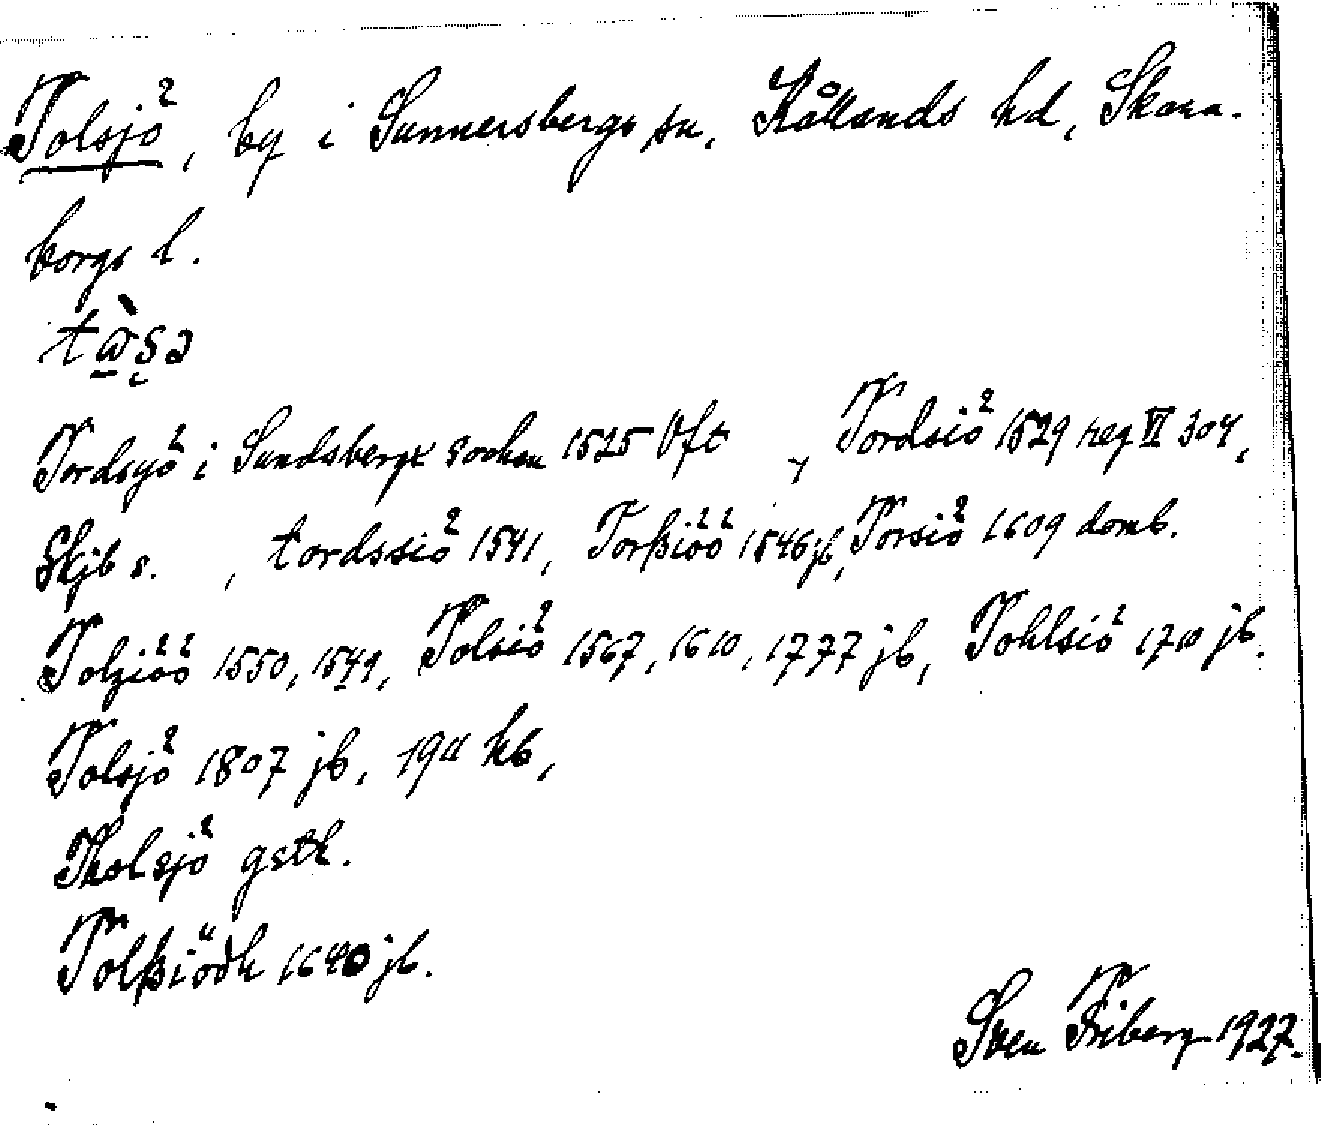 Tolsjö, by i Sunnersbergs sn, Kållands hd, Skara-
borgs l.
Tordsyö i Sundsbergx sochen 1525 Vft, Tordsiö 1529 reg VI 304,
Skjb s. , tordssiö 1541, Torßiöö 1546 jb, Torsiö 1609 domb.
Tolziöö 1550, 1549, Tolsiö 1567, 1610, 1777 jb, Tohlsiö 1710 jb.
Tolsjö 1807 jb, 1911 kb,
Tholsjö gstk.
Tolßiödh 1640 jb.
Sven Friberg 1927.